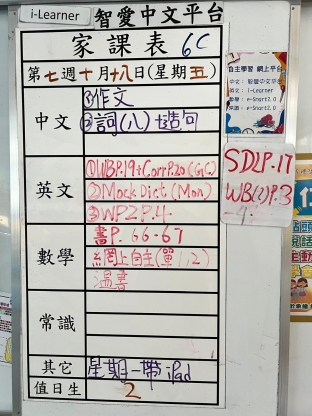 i-Learner 智愛中文平台
家課表 6C
第七週十月十八日(星期五)
中文
①作文
②詞(八)+造句
英文
①WB P.19+Corr P.20(GC)
②Mock Dict (Mon)
③WP2 P.4
數學
書P. 66-67
網上自主(單1,2)
溫書
常識
其它
星期一帶 iPad
值日生
2
自主學習 網上平台
中文: 智愛中文平台
英文: i-Learner
數學: e-Smart2.0
常識: e-Smart2.0
SDLP.17
WB(2)P.3